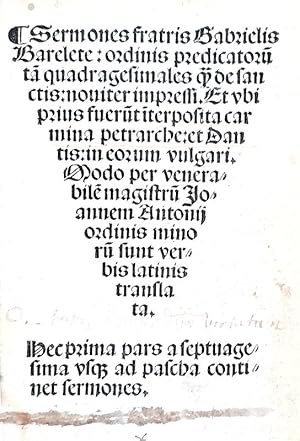 ¶ Sermones fratris Gabrielis
Barelete: ordinis predicatorū
tā quadragesimales q̄ȝ de san
ctis: noviter impressi. Et vbi
prius fuerūt īterposita car
mina petrarche: et Dan
tis: in eorum vulgari.
Modo per venera⸗
bilē magistrū Jo⸗
annem Antonij
ordinis mino
rū sunt ver⸗
bis latinis
transla
ta.
Hec prima pars a septuage⸗
sima vsqȝ ad pascha conti⸗
net sermones.